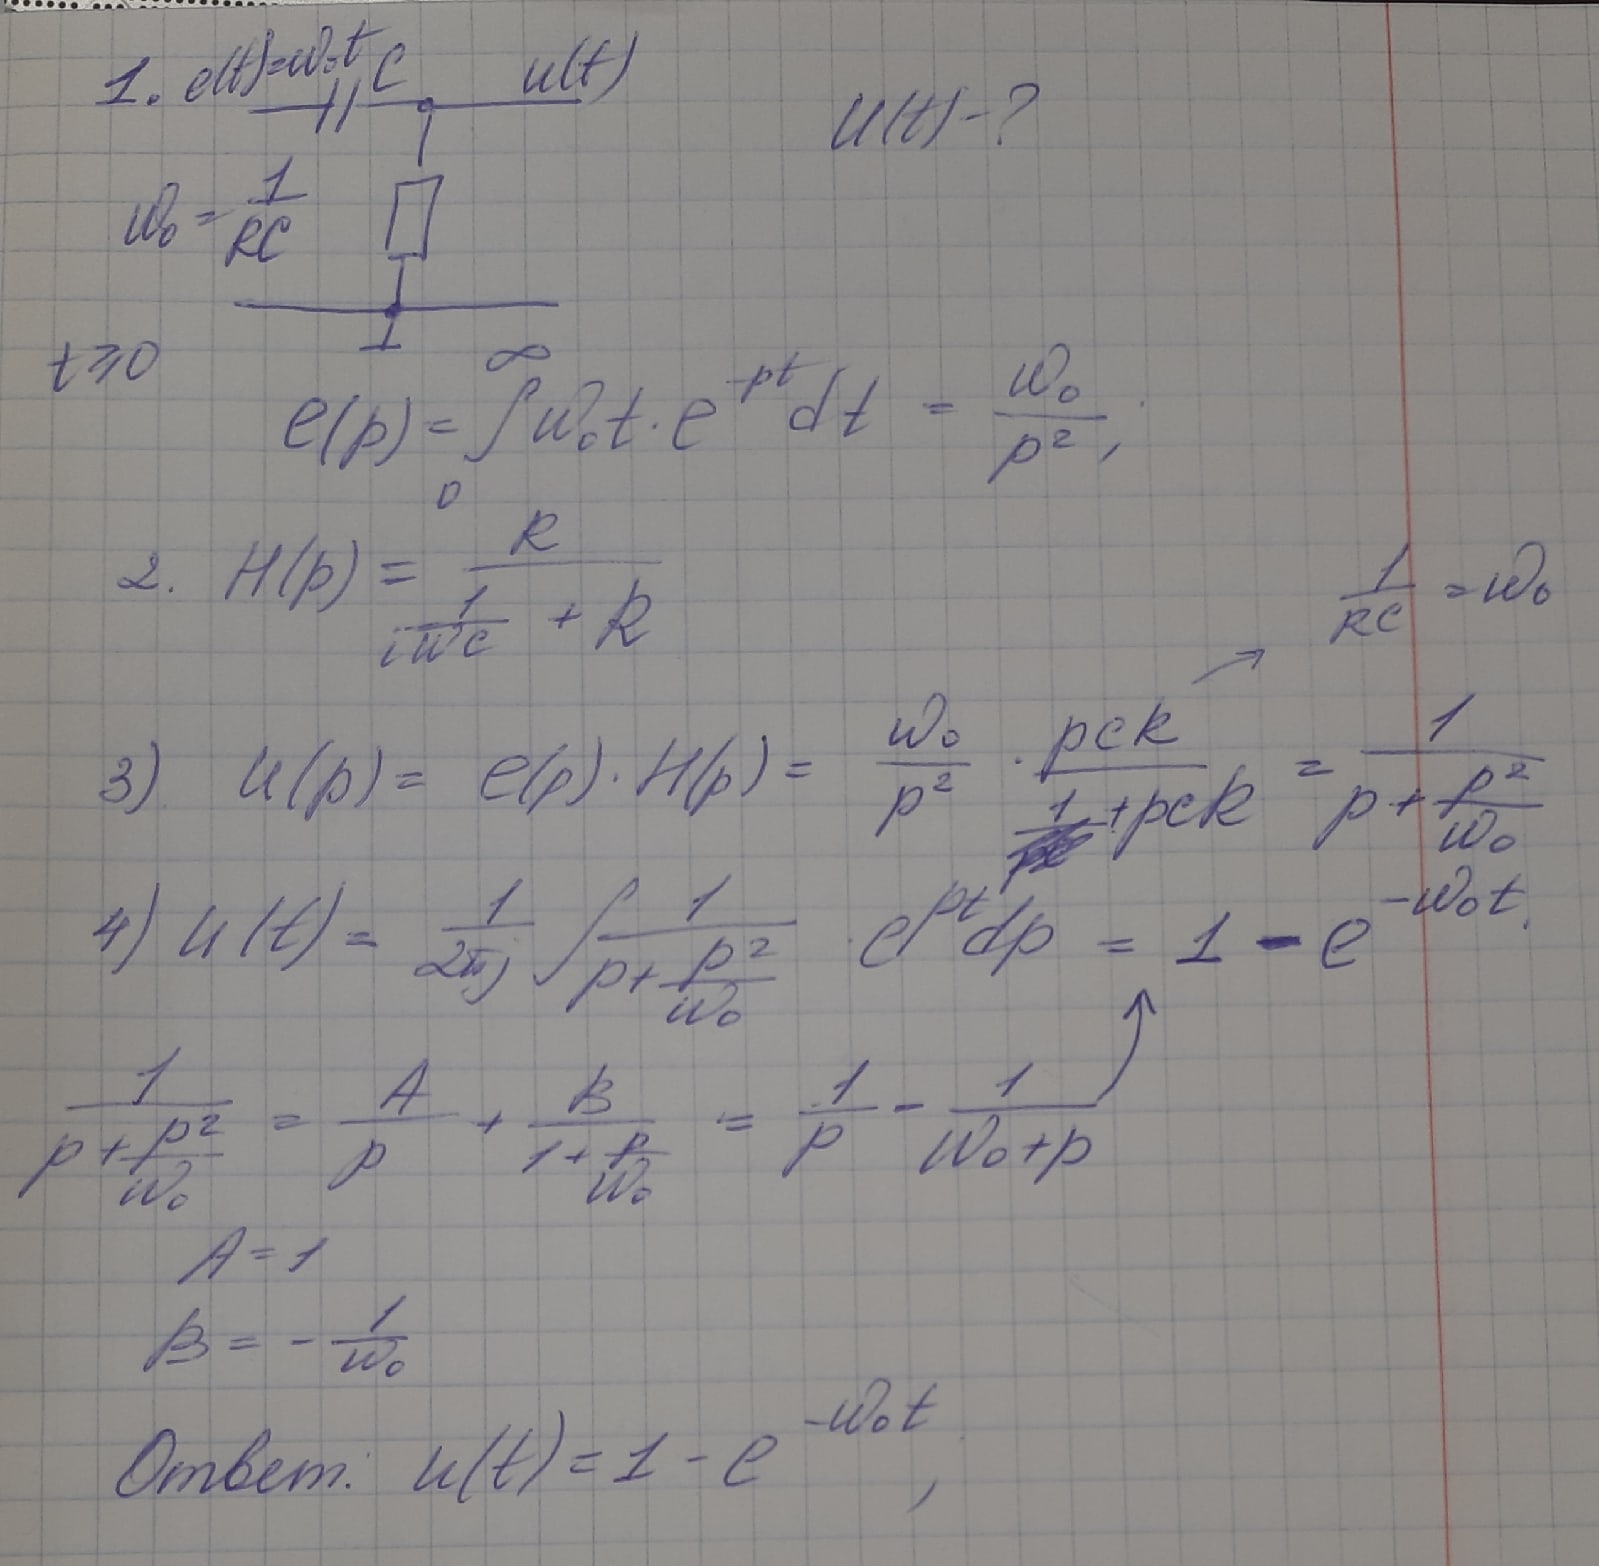 1. e(t)=ω₀t C u(t)
U(t)-?
ω₀ = 1/RC
t⩾0
e(p) = ∫₀^∞ ω₀t · e^(-pt) dt = ω₀/p²,
2. H(p) = R/(1/(iωc) + R)
1/RC = ω₀
3) U(p) = e(p) · H(p) = ω₀/p² · pcR/(1+pcR) = 1/(p + p²/ω₀)
4) U(t) = 1/(2πj) ∫ 1/(p + p²/ω₀) · e^(pt) dp = 1 - e^(-ω₀t).
1/(p + p²/ω₀) = A/p + B/(1 + p/ω₀) = 1/p - 1/(ω₀+p)
A = 1
B = - 1/ω₀
Ответ: u(t) = 1 - e^(-ω₀t),